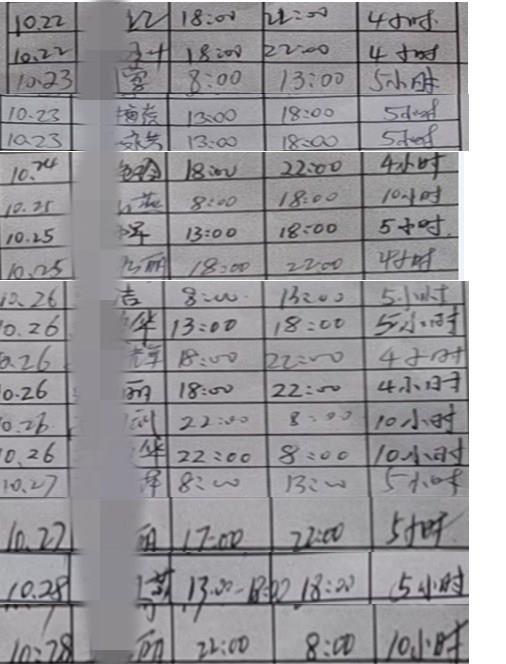 10.22 18:00 22:00 4小时
10.22 18:00 22:00 4小时
10.23 8:00 13:00 5小时
10.23 13:00 18:00 5小时
10.23 13:00 18:00 5小时
10.24 18:00 22:00 4小时
10.25 燕 8:00 18:00 10小时
10.25 13:00 18:00 5小时
10.25 丽 18:00 22:00 4小时
10.26 吉 8:00 13:00 5小时
10.26 华 13:00 18:00 5小时
0.26 18:00 22:00 4小时
0.26 丽 18:00 22:00 4小时
0.26 22:00 8:00 10小时
10.26 华 22:00 8:00 10小时
10.27 8:00 13:00 5小时
10.27 17:00 22:00 5小时
10.28 13:00-18:00 18:00 5小时
10.28 丽 22:00 8:00 10小时